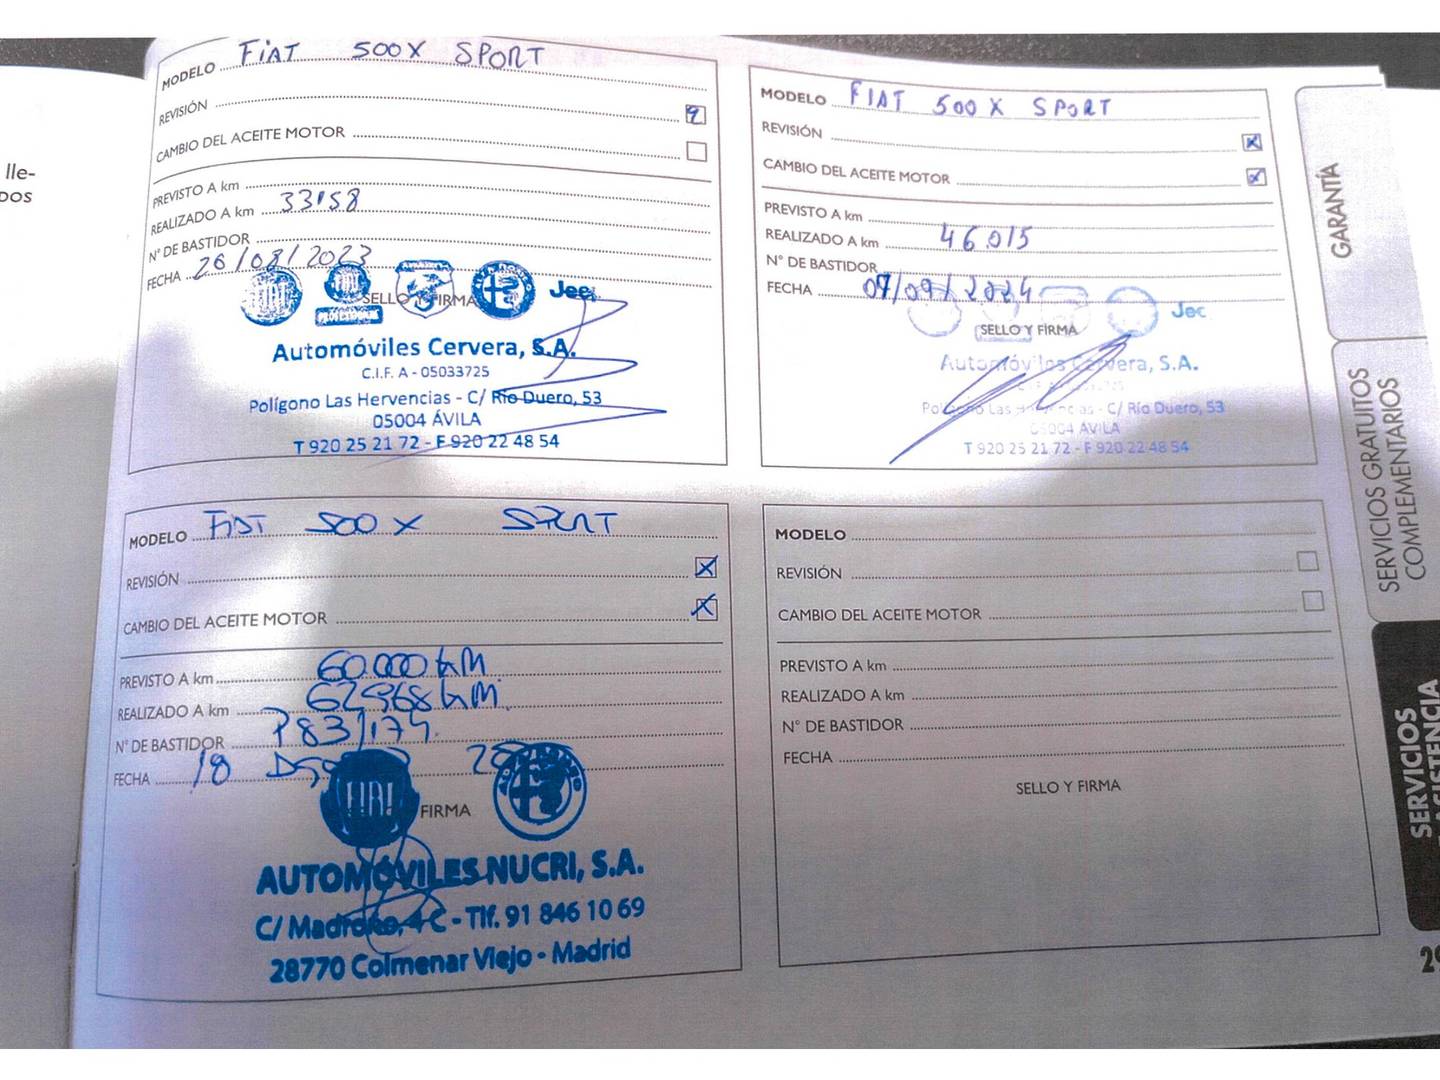 lle-
DOS
MODELO FIAT 500X SPORT
REVISIÓN
CAMBIO DEL ACEITE MOTOR
PREVISTO A km
REALIZADO A km 33158
N° DE BASTIDOR
FECHA 26/08/2023
SELLO Y FIRMA
FIAT PROFESSIONAL Jeep
Automóviles Cervera, S.A.
C.I.F. A - 05033725
Polígono Las Hervencias - C/ Río Duero, 53
05004 ÁVILA
T 920 25 21 72 - F 920 22 48 54
MODELO FIAT 500X SPORT
REVISIÓN X
CAMBIO DEL ACEITE MOTOR X
PREVISTO A km
REALIZADO A km 46015
N° DE BASTIDOR
FECHA 07/09/2024
SELLO Y FIRMA
Jeep
Automóviles Cervera, S.A.
Polígono Las Hervencias - C/ Río Duero, 53
05004 ÁVILA
T 920 25 21 72 - F 920 22 48 54
MODELO FIAT 500X SPORT
REVISIÓN X
CAMBIO DEL ACEITE MOTOR X
PREVISTO A km 60.000 KM.
REALIZADO A km 62968 KM.
N° DE BASTIDOR P831174.
FECHA 18
FIAT FIRMA
AUTOMÓVILES NUCRI, S.A.
C/ Madroño, 4 C - Tlf. 91 846 10 69
28770 Colmenar Viejo - Madrid
MODELO
REVISIÓN
CAMBIO DEL ACEITE MOTOR
PREVISTO A km
REALIZADO A km
N° DE BASTIDOR
FECHA
SELLO Y FIRMA
GARANTÍA
SERVICIOS GRATUITOS
COMPLEMENTARIOS
SERVICIOS
ASISTENCIA
29